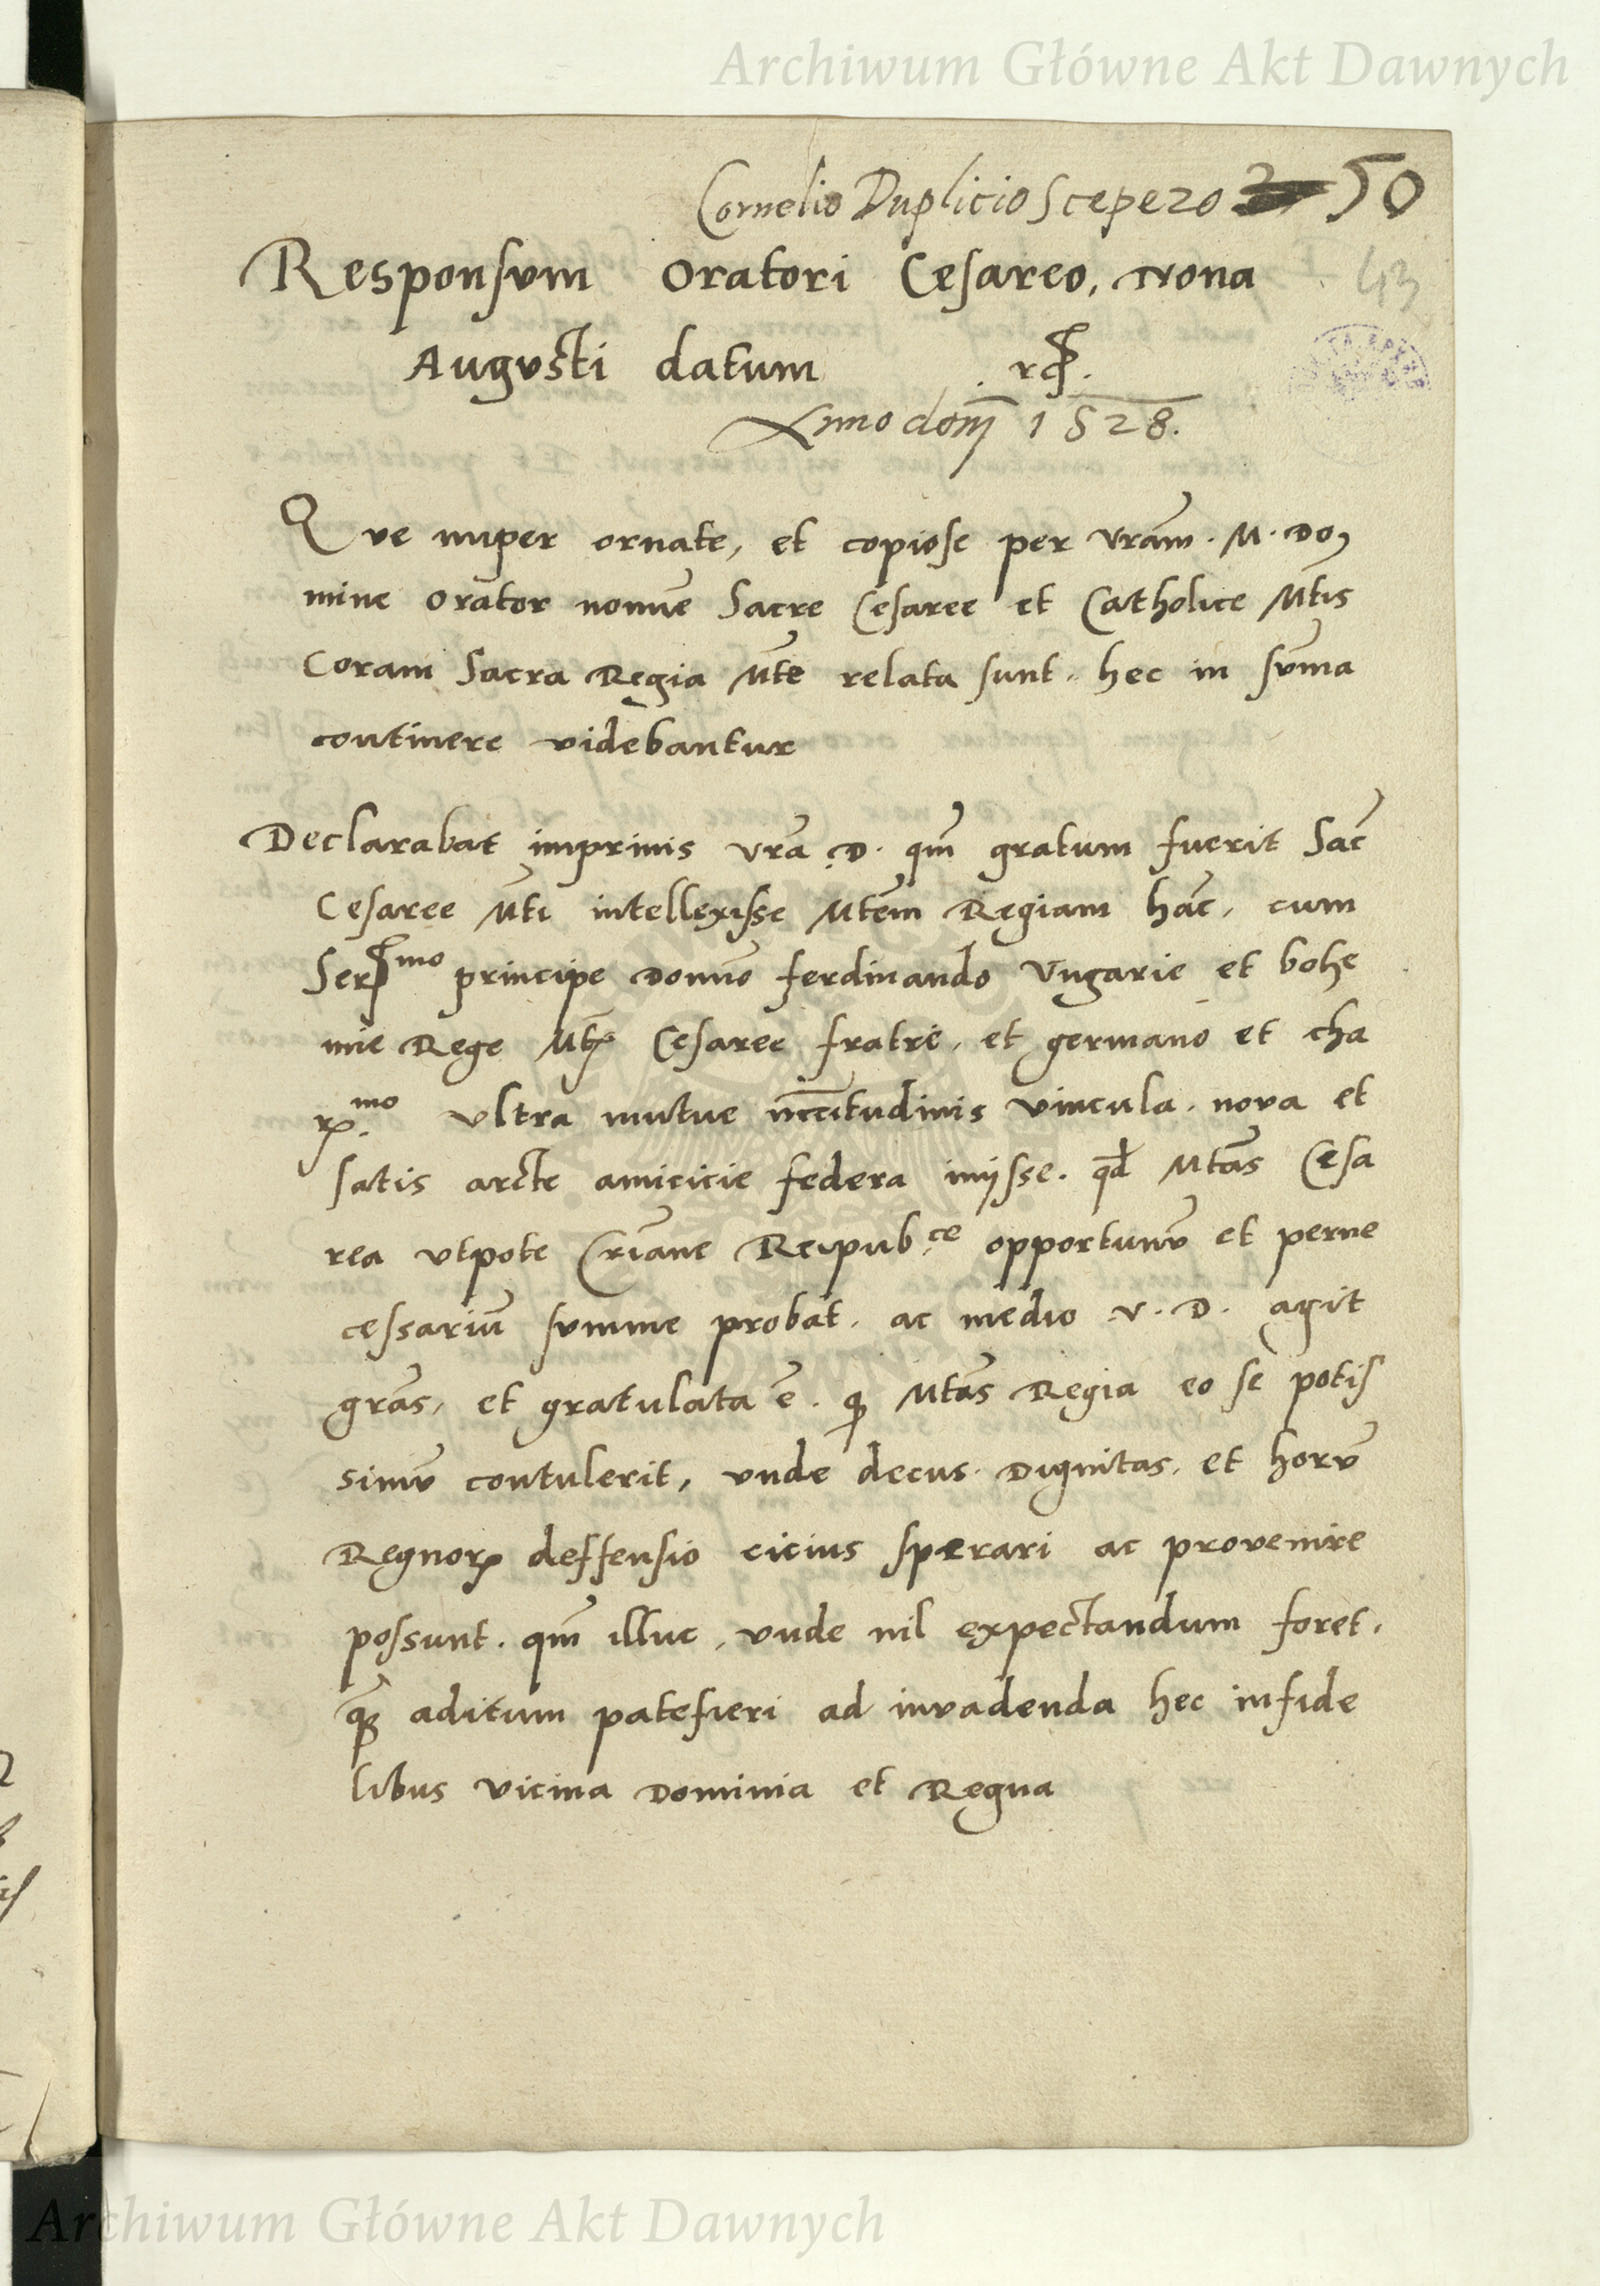 Archiwum Główne Akt Dawnych
Cornelio Duplicio Scepero 50
Responsvm Oratori Cesareo, Nona 43
Augusti datum
Anno domj 1528.
Qve nuper ornate, et copiose per vram. M. Do,
mine orator nomīe Sacre Cesaree et Catholice Mtis
Coram Sacra Regia Mte relata sunt, hec in sv̄ma
continere videbantur
Declarabat imprimis vrā D. qm̄ gratum fuerit Sac̄
Cesaree Mti intellexisse Mtem Regiam hāc, cum
Ser^mo principe Domīo ferdinando Vngarie et bohe
mie Rege Mtꝭ Cesaree fratre, et germano et cha
rꝭ^mo vltra mutue necc̄itudinis vincula, nova et
satis arcte amicicie federa inijsse. qd Mtas Cesa
rea vtpote Cr̄iane Reipub^ce opportunv̄ et perne
cessariū svmme probat. ac medio v. D. agit
grās, et gratulata ē. qꝫ Mtas Regia eo se potis
simv̄ contulerit, vnde decus. Dignitas, et horv̄
Regnorꝝ deffensio cicius sperari ac provenire
possunt. qm̄ illuc, vnde nil expectandum foret.
aditum patefieri ad invadenda hec infide
libus vicina Dominia et Regna
Archiwum Główne Akt Dawnych